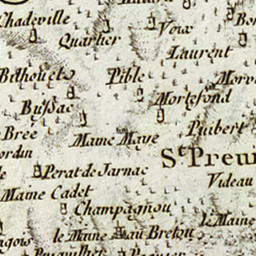 Chadeville
Quartier
Voux
Laurent
Bitholieto
Pible
Morv
Mortefond
Bussac
Puibert
Bree
Maine Maye
ordin
St. Preui
Perat de Jarnac
Videau
Maine Cadet
Champagnou
le Maine
ngois
le Maine au Bretou